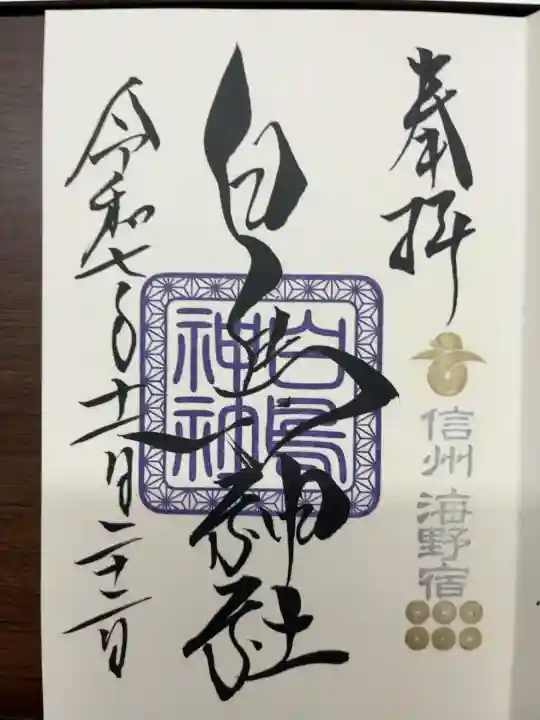 奉拝
信州 海野宿
白鳥神社
白鳥
神社
令和七年十一月二十二日